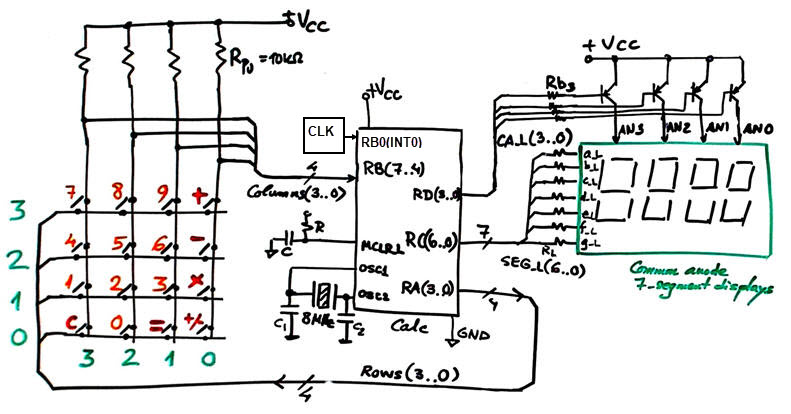 +Vcc
RPU = 10kΩ
+Vcc
CLK
RB0(INT0)
RB(7..4)
4
Columns(3..0)
RD(3..0)
R
C
MCLR_L
RC(6..0)
7
OSC1
OSC2
RA(3..0)
4
8MHz
C1
C2
Calc
GND
Rows(3..0)
4
+Vcc
Rb3
AN3 AN2 AN1 AN0
CA_L(3..0)
a_L
b_L
c_L
d_L
e_L
f_L
g_L
RL
SEG_L(6..0)
Common anode
7-segment displays
3 7 8 9 +
2 4 5 6 -
1 1 2 3 x
0 C 0 = +/-
3 2 1 0